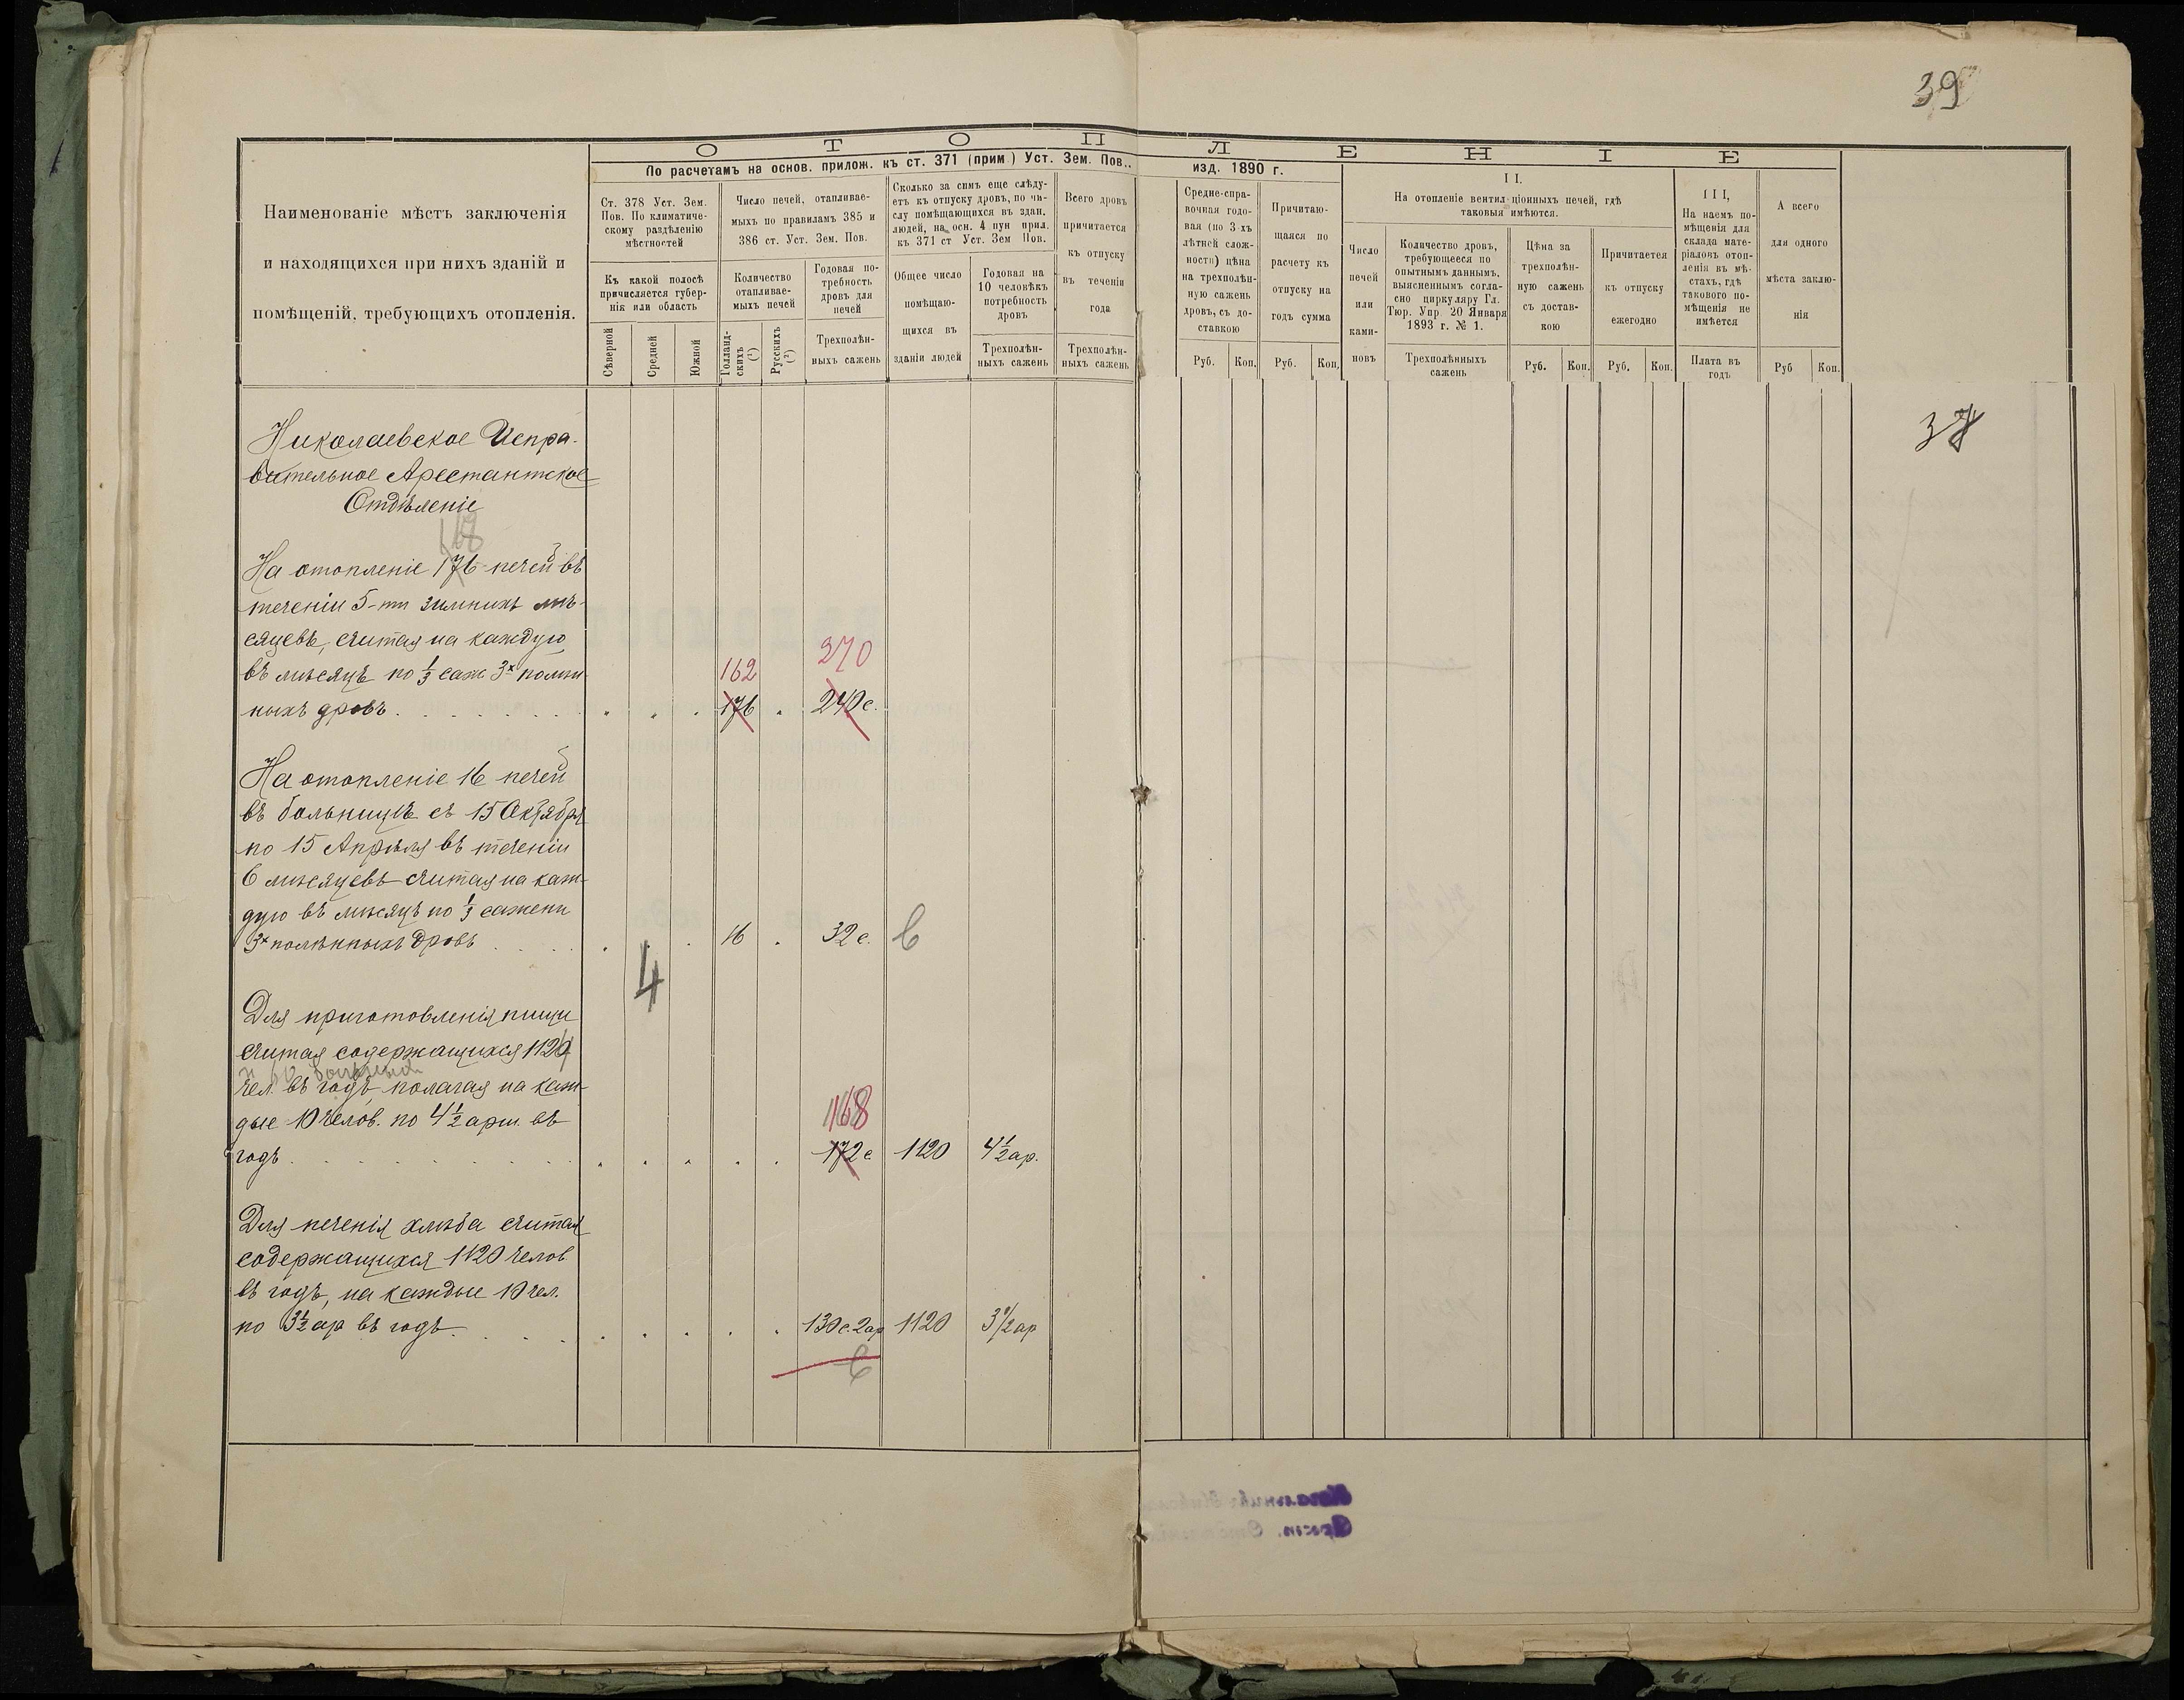 39
О Т О П Л Е Н І Е
По расчетамъ на основ. прилож. къ ст. 371 (прим.) Уст. Зем. Пов.. изд. 1890 г.
Наименованіе мѣстъ заключенія
и находящихся при нихъ зданій и
помѣщеній, требующихъ отопленія.
Ст. 378 Уст. Зем.
Пов. По климатиче-
скому раздѣленію
мѣстностей
Къ какой полосѣ
причисляется губер-
нія или область
Сѣверной
Средней
Южной
Число печей, отапливае-
мыхъ по правиламъ 385 и
386 ст. Уст. Зем. Пов.
Количество
отапливае-
мыхъ печей
Голланд-
скихъ
(¹)
Русскихъ
(²)
Годовая по-
требность
дровъ для
печей
Трехполѣн-
ныхъ сажень
Сколько за симъ еще слѣду-
етъ къ отпуску дровъ, по чи-
слу помѣщающихся въ здан.
людей, на осн. 4 пун прил.
къ 371 ст Уст. Зем Пов.
Общее число
помѣщаю-
щихся въ
зданіи людей
Годовая на
10 человѣкъ
потребность
дровъ
Трехполѣн-
ныхъ сажень
Всего дровъ
причитается
къ отпуску
въ теченіи
года
Трехполѣн-
ныхъ сажень
Средне-спра-
вочная годо-
вая (по 3-хъ
лѣтней слож-
ности) цѣна
на трехполѣн-
ную сажень
дровъ, съ до-
ставкою
Руб. Коп.
Причитаю-
щаяся по
расчету къ
отпуску на
годъ сумма
Руб. Коп.
II.
На отопленіе вентил-ціонныхъ печей, гдѣ
таковыя имѣются.
Число
печей
или
ками-
новъ
Количество дровъ,
требующееся по
опытнымъ даннымъ,
выясненнымъ согла-
сно циркуляру Гл.
Тюр. Упр 20 Января
1893 г. № 1.
Трехполѣнныхъ
сажень
Цѣна за
трехполѣн-
ную сажень
съ достав-
кою
Руб. Коп.
Причитается
къ отпуску
ежегодно
Руб. Коп.
III,
На наемъ по-
мѣщенія для
склада мате-
ріаловъ отоп-
ленія въ мѣ-
стахъ, гдѣ
таковаго по-
мѣщенія не
имѣется
Плата въ
годъ
А всего
для одного
мѣста заклю-
нія
Руб Коп.
37
Николаевское Испра-
вительное Арестантское
Отдѣленіе
168
На отопленіе 176 печей въ
теченіи 5-ти зимнихъ мѣ-
сяцевъ, считая на каждую
въ мѣсяцъ по ⅓ саж 3х полѣн-
162 270
ныхъ дровъ . . . . 176 240 с.
На отопленіе 16 печей
въ больницѣ съ 15 Октября
по 15 Апрѣля въ теченіи
6 мѣсяцевъ считая на каж-
дую въ мѣсяцъ по ⅓ сажени
3х полѣнныхъ дровъ . . . 16 32 с.
4
Для приготовленія пищи
считая содержащихся 1120
чел. въ годъ, полагая на каж-
дые 10 челов. по 4½ арш. въ
168
годъ . . . . 172 с 1120 4½ ар.
Для печенія хлѣба считая
содержащихся 1120 челов
въ годъ, на каждые 10 чел.
по 3½ ар въ годъ . . . 130 с. 2 ар 1120 3½ ар